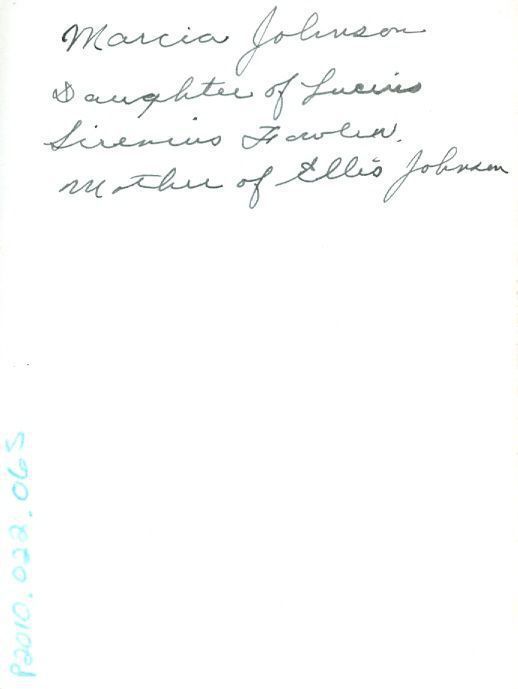 Marcia Johnson
Daughter of Lucius
Sirenius Fowler.
Mother of Ellis Johnson
P2010.022.065